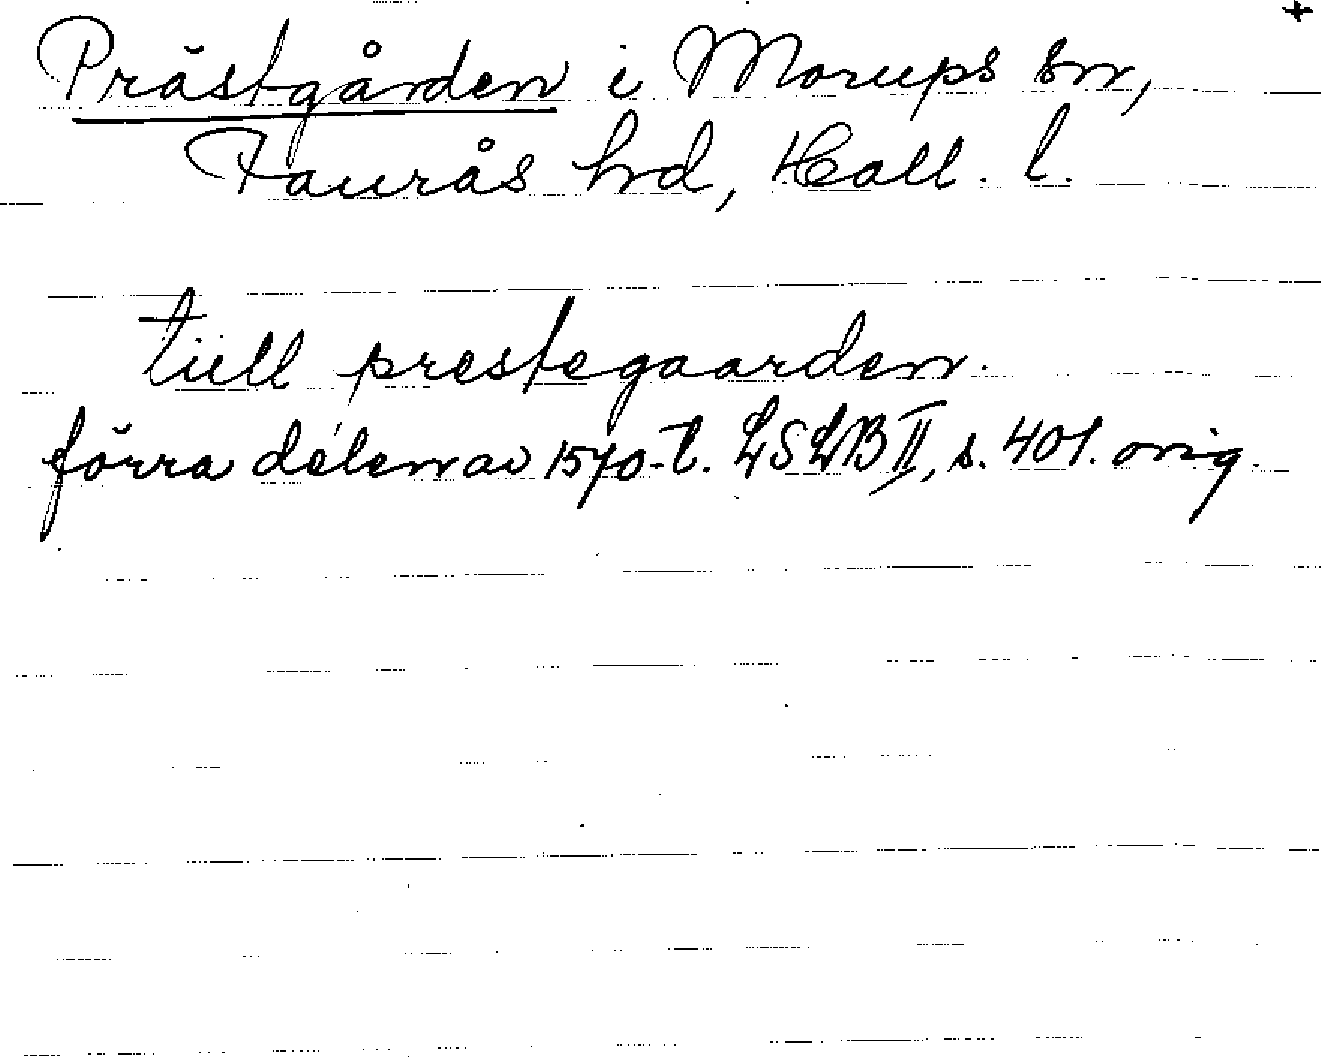 +
Prästgården i Morups sn,
Faurås hd, Hall. l.
tiill prestegaarden.
förra delen av 1570-t. LSLB II, s. 401. orig.